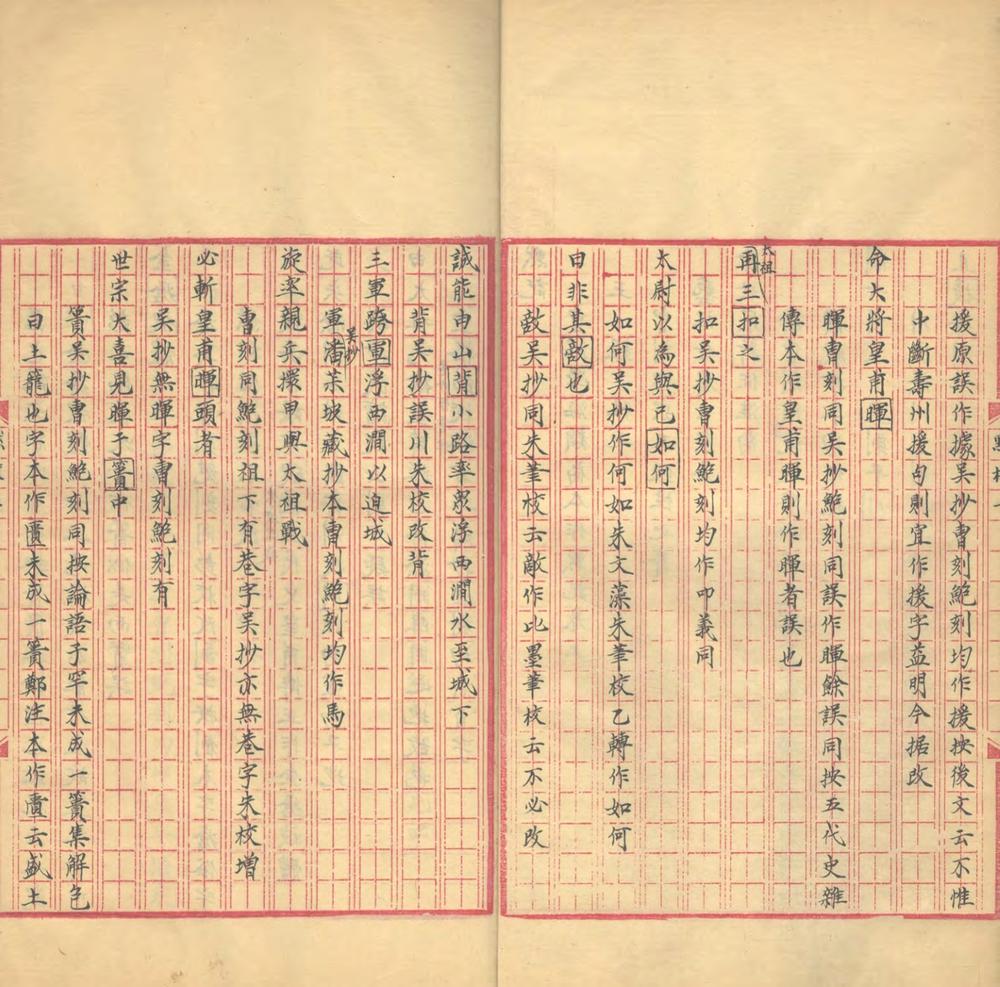 援原誤作據吳抄曹刻鮑刻均作援按後文云不惟
中斷壽州援句則宜作援字益明今据改
命大將皇甫暉
暉曹刻同吳抄鮑刻同誤作暉餘誤同按五代史雜
傳本作皇甫暉則作暉者誤也
太祖
再三扣之
扣吳抄曹刻鮑刻均作叩義同
太尉以為與己如何
如何吳抄作何如朱文藻朱筆校乙轉作如何
由非其敵也
敵吳抄同朱筆校云敵作比墨筆校云不必改
誠能由山背小路率眾浮西澗水至城下
背吳抄誤川朱校改背
三軍跨軍浮西澗以迫城
吳抄
軍潘茮坡藏抄本曹刻鮑刻均作馬
旋率親兵擐甲與太祖戰
曹刻同鮑刻祖下有巷字吳抄亦無巷字朱校增
必斬皇甫暉頭者
吳抄無暉字曹刻鮑刻有
世宗大喜見暉于簣中
簣吳抄曹刻鮑刻同按論語子罕未成一簣集解包
曰土籠也字本作匱未成一簣鄭注本作匱云盛土